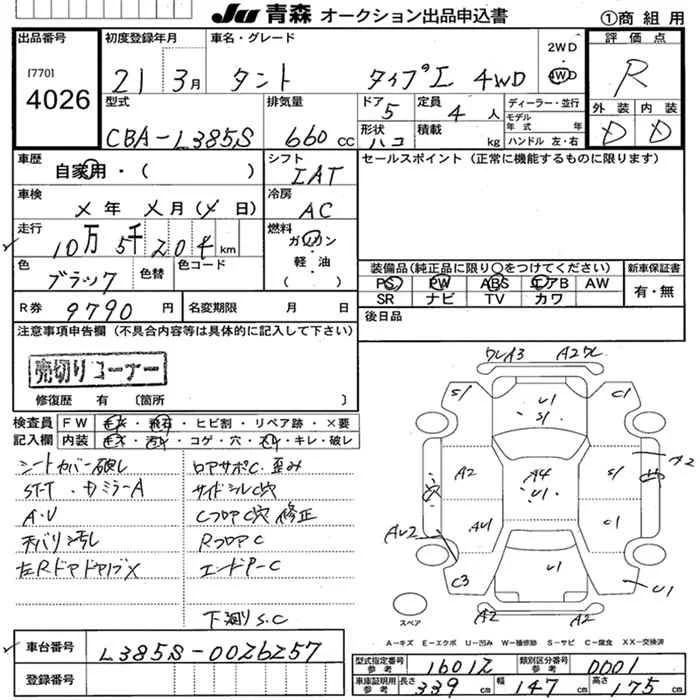 JU 青森 オークション出品申込書
①商組用
出品番号
[770]
4026
初度登録年月
21 3月
車名・グレード
タント タイプI 4WD
2WD
4WD
評価点
R
外装 内装
D D
型式
CBA-L385S
排気量
660 cc
ドア 5
形状 ハコ
定員 4 人
積載 kg
ディーラー・並行
モデル年式 年
ハンドル 左・右
車歴
自家用・( )
シフト
IAT
セールスポイント (正常に機能するものに限ります)
車検
メ 年 メ 月 (メ 日)
冷房
AC
走行
10万 5千 204 km
燃料
ガソリン
軽・油
( )
色
ブラック
色替
色コード
装備品(純正品に限り○をつけてください)
新車保証書
PS PW ABS エアB AW
SR ナビ TV カワ
有・無
R券 9790 円
名変期限 月 日
後日品
注意事項申告欄 (不具合内容等は具体的に記入して下さい)
売切りコーナー
修復歴 有 〔箇所 〕
検査員記入欄
FW キズ・飛石・ヒビ割・リペア跡・×要
内装 キズ・汚れ・コゲ・穴・スレ・キレ・破レ
シートカバー破レ
ST-T・カミラーA
A・U
天バリ汚レ
左RドアドアノブX
ロアサポC・歪み
サイドシルC穴
CフロアC穴 修正
RフロアC
エンドP-C
下廻りS.C
ワレA3
A2ワレ
S/
U1
S/
C1
A2
A4
U1
S/
A2
AU2
AU1
C1
C3
U1
A2
A2
スペア
A-キズ E-エクボ U-凹み W-補修跡 S-サビ C-腐食 XX-交換済
車台番号
L385S-0026257
登録番号
型式指定番号 参考 16012
類別区分番号 参考 0001
車庫証明用 参考
長さ 339 cm
幅 147 cm
高さ 175 cm